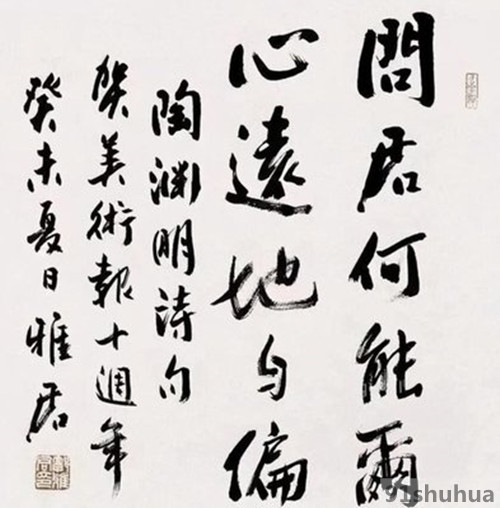 問君何能爾
心遠地自偏
陶渊明詩句
賀美術報十週年
癸未夏日雅君
91shuhua